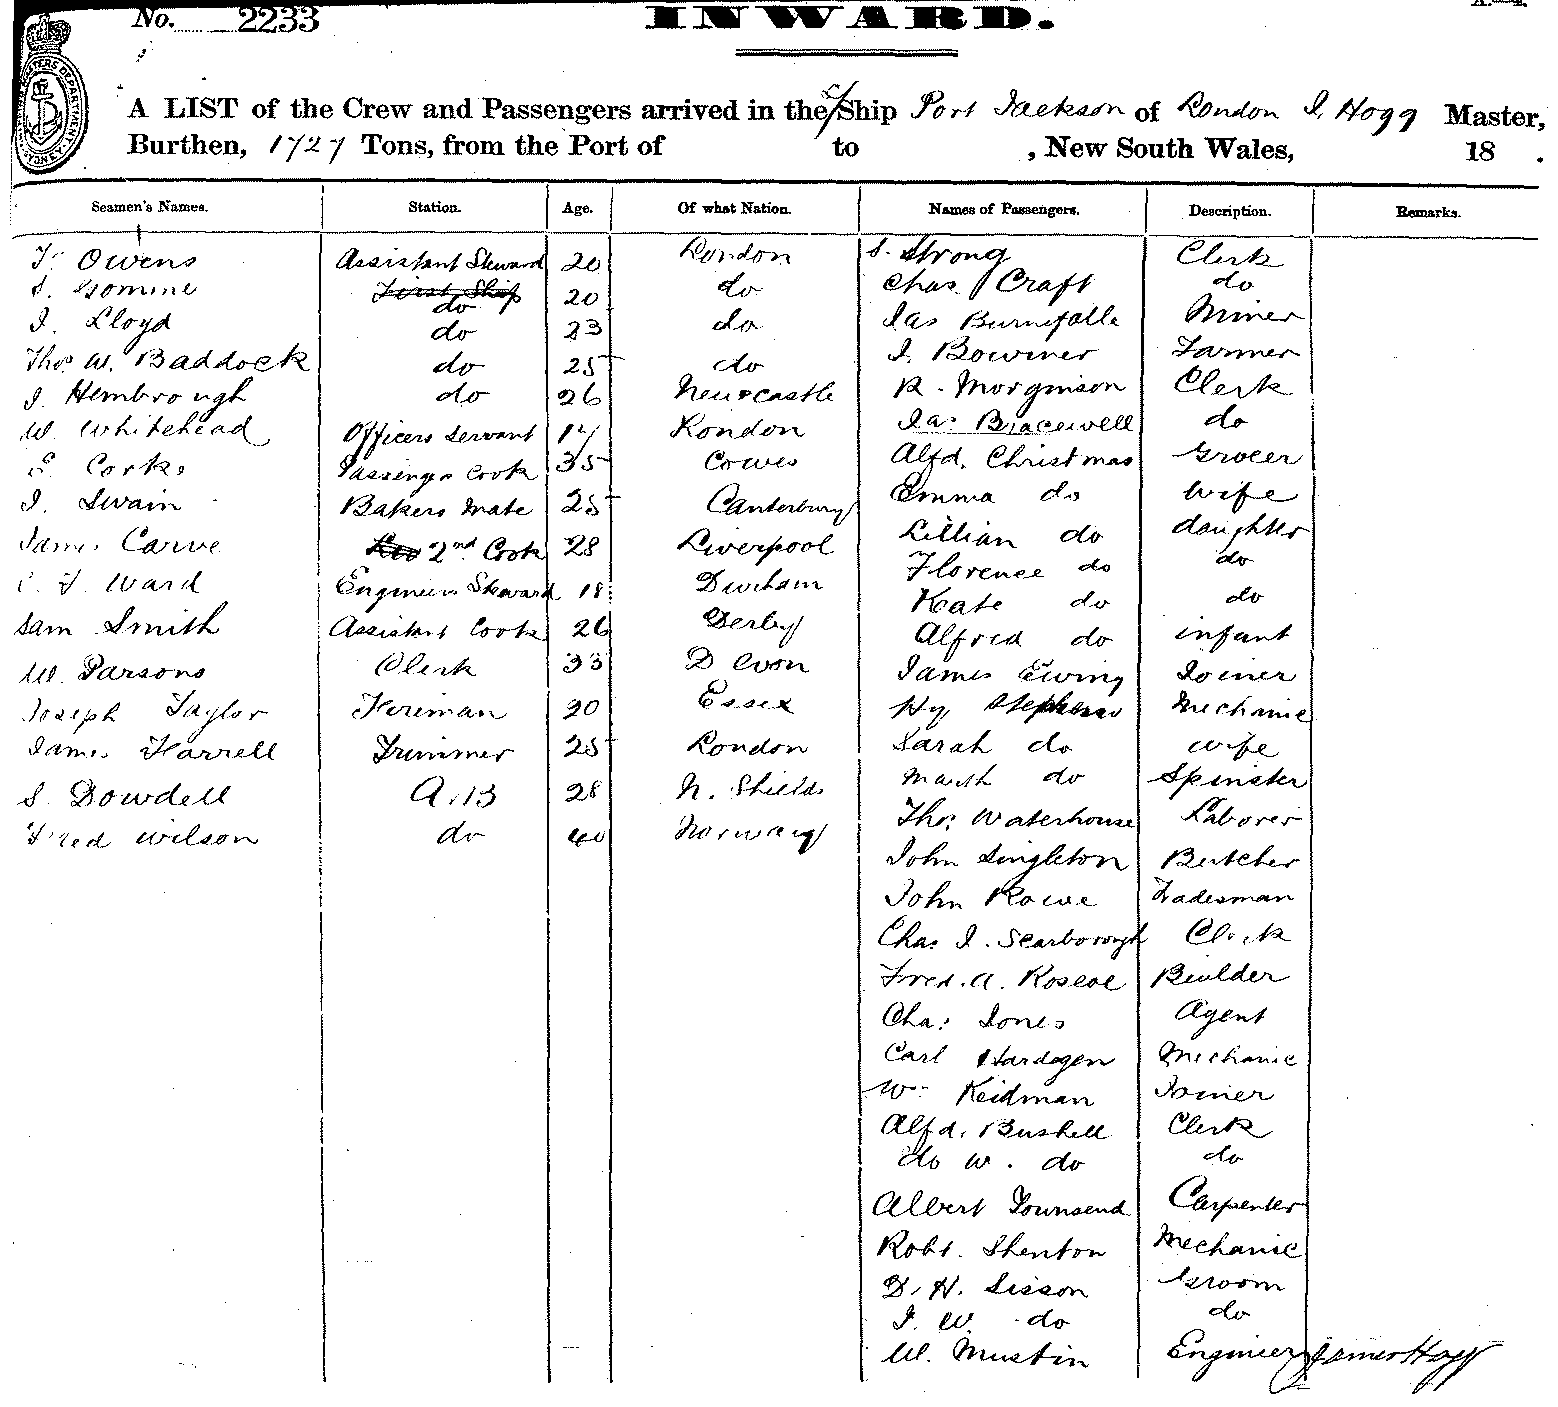 No. 2233
INWARD.
A LIST of the Crew and Passengers arrived in the S/Ship Port Jackson of London J. Hogg Master,
Burthen, 1727 Tons, from the Port of to , New South Wales, 18 .
Seamen's Names. Station. Age. Of what Nation. Names of Passengers. Description. Remarks.
Owens Assistant Steward 20 London S. Strong Clerk
do 20 do Chas. Craft do
J. Lloyd do 23 do Jas Miner
Thos W. Baddock do 25 do J. Farmer
J. Hembrough do 26 Newcastle R. Morginson Clerk
W. Whitehead Officers Servant 17 London Jas Bracewell do
Passengs Cook 35 Cowes Alfd. Christmas Grocer
J. Swain Bakers Mate 25 Canterbury Emma do wife
James Carve 2nd Cook 28 Liverpool Lillian do daughter
Ward Engineers Steward 18 Durham Florence do do
Kate do do
Sam Smith Assistant Cook 26 Derby Alfred do infant
W. Parsons Clerk 33 Devon James Ewing Joiner
Joseph Taylor Fireman 20 Essex Hy Mechanic
James Farrell Trimmer 25 London Sarah do wife
S. Dowdell A.B 28 N. Shields do Spinster
Fred Wilson do 40 Norway Thos Waterhouse Laborer
John Singleton Butcher
John Rowe Tradesman
Chas J. Scarborough Clerk
Fred. A. Roscoe Builder
Chas Jones Agent
Carl Hardagen Mechanic
Wm Keidman Joiner
Alfd. Bushell Clerk
do W. do do
Albert Townsend Carpenter
Robt. Shenton Mechanic
D. H. Sisson Groom
J. W. do do
W. Mustin Engineer James Hogg